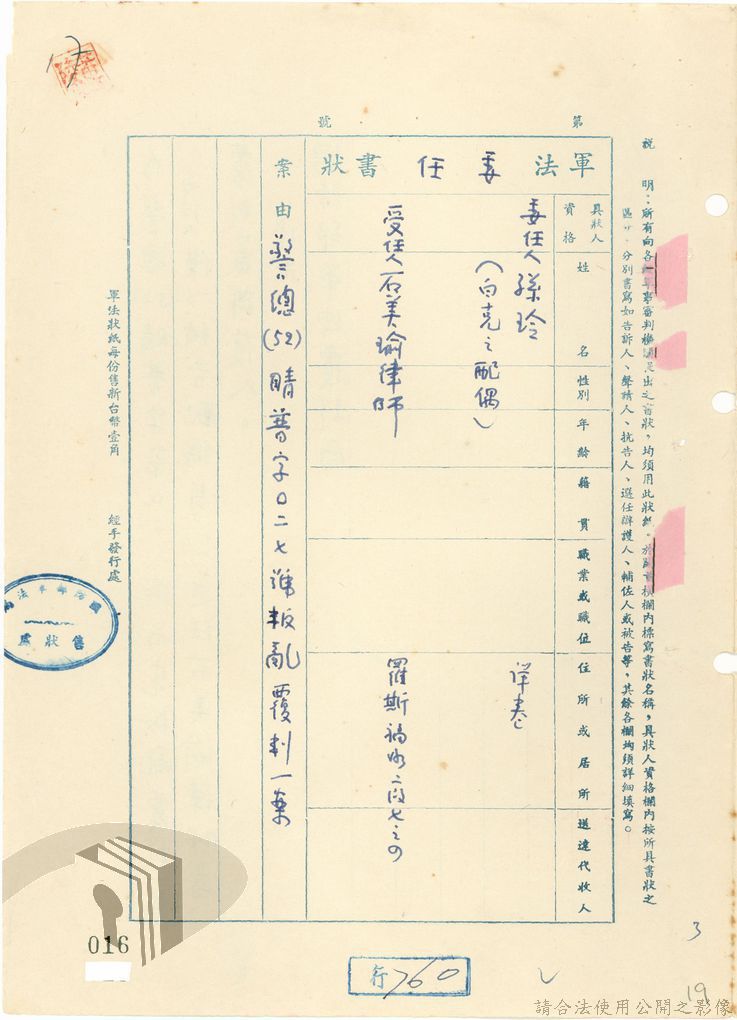 說明：所有向各級軍事審判機關提出之書狀，均須用此狀紙。於副首橫欄內標寫書狀名稱，具狀人資格欄內按所具書狀之
區分，分別書寫如告訴人、聲請人、抗告人、選任辯護人、輔佐人或被告等，其餘各欄均須詳細填寫。
第 號
軍法委任書狀
具狀人資格
姓名
性別
年齡
籍貫
職業或職位
住所或居所
送達代收人
委任人 孫玲 詳卷
（白克之配偶）
受任人 石美瑜律師 羅斯福路二段七之四
案由 警總(52)晴普字〇二七號叛亂覆判一案
軍法狀紙每份售新台幣壹角 經手發行處
國防部軍法局
售狀處
016
行 760
3
19
請合法使用公開之影像